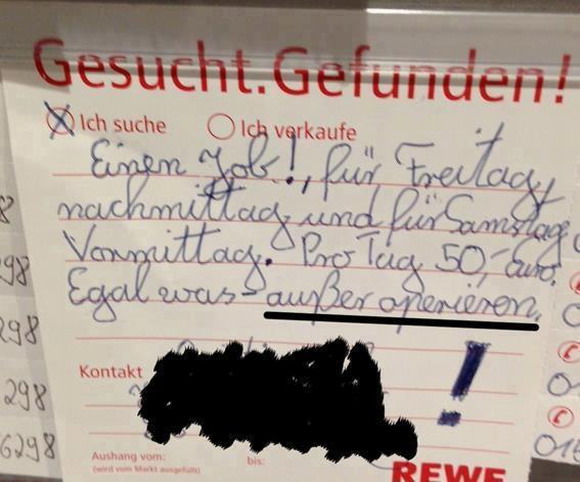 Gesucht.Gefunden!
Ich suche Ich verkaufe
Einen Job!, für Freitag,
nachmittag und für Samstag
Vormittag. Pro Tag 50,- Euro.
Egal was - außer operieren.
!
Kontakt
Aushang vom: bis:
(wird vom Markt ausgefüllt)
REWE
8
298
298
298
6298